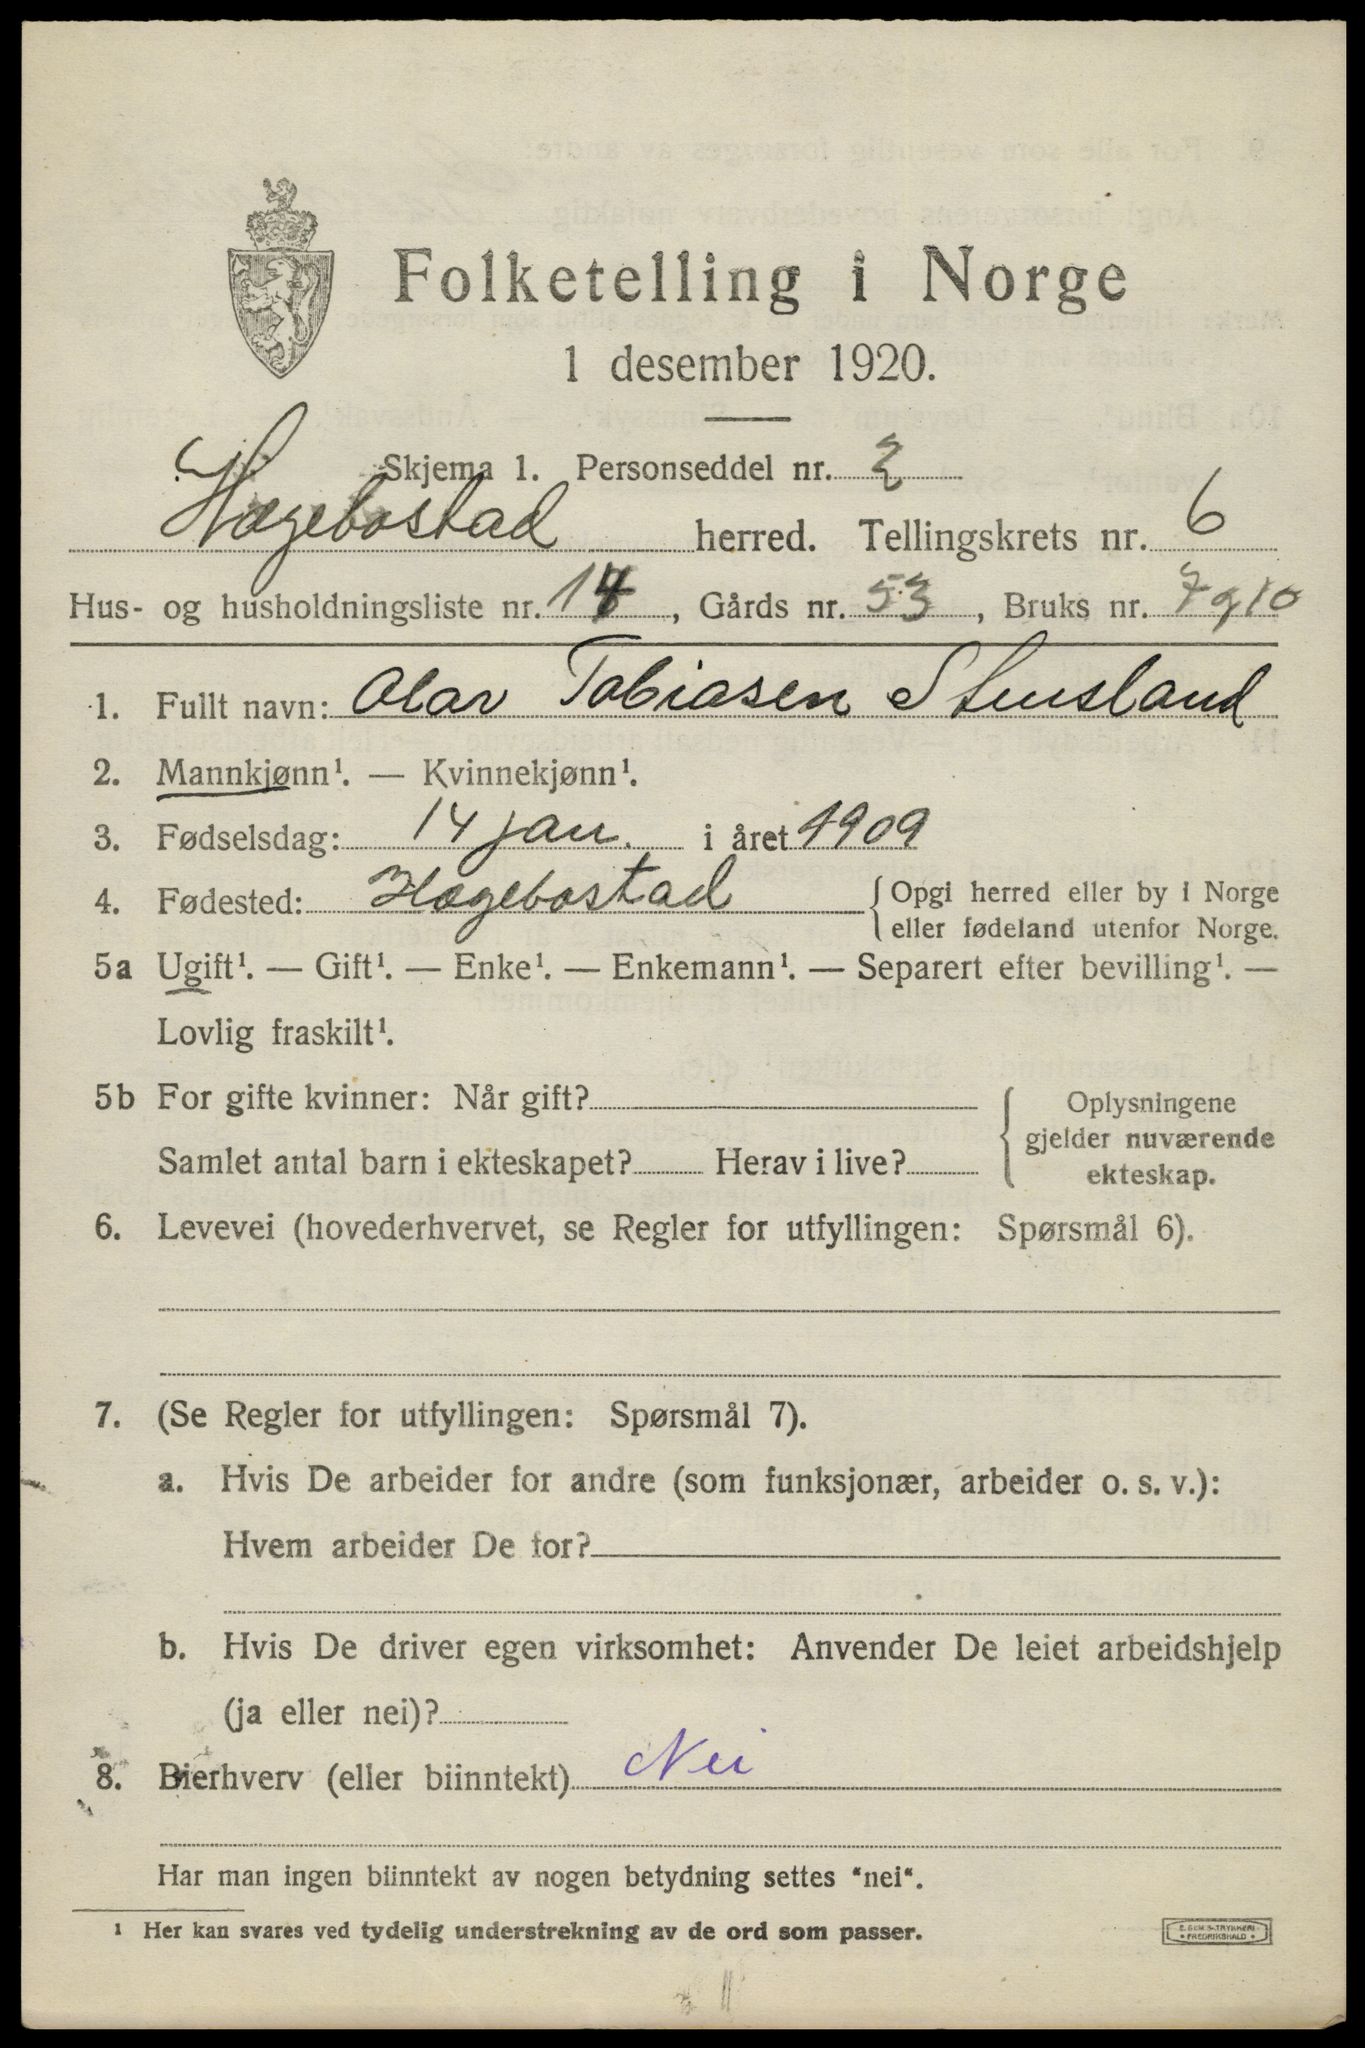 Folketelling i Norge
1 desember 1920.
Skjema 1. Personseddel nr. 2
Hægebostad herred. Tellingskrets nr. 6
Hus- og husholdningsliste nr. 14, Gårds nr. 53, Bruks nr. 7 og 10
1. Fullt navn: Olav Tobiasen Stensland
2. Mannkjønn¹. — Kvinnekjønn¹.
3. Fødselsdag: 14 jan. i året 1909
4. Fødested: Hægebostad {Opgi herred eller by i Norge
eller fødeland utenfor Norge.
5a Ugift¹. — Gift¹. — Enke¹. — Enkemann¹. — Separert efter bevilling¹. —
Lovlig fraskilt¹.
5b For gifte kvinner: Når gift?
Samlet antal barn i ekteskapet? Herav i live?
{Oplysningene
gjelder nuværende
ekteskap.
6. Levevei (hovederhvervet, se Regler for utfyllingen: Spørsmål 6).
7. (Se Regler for utfyllingen: Spørsmål 7).
a. Hvis De arbeider for andre (som funksjonær, arbeider o. s. v.):
Hvem arbeider De for?
b. Hvis De driver egen virksomhet: Anvender De leiet arbeidshjelp
(ja eller nei)?
8. Bierhverv (eller biinntekt) Nei
Har man ingen biinntekt av nogen betydning settes "nei".
¹ Her kan svares ved tydelig understrekning av de ord som passer.
FREDRIKSHALD